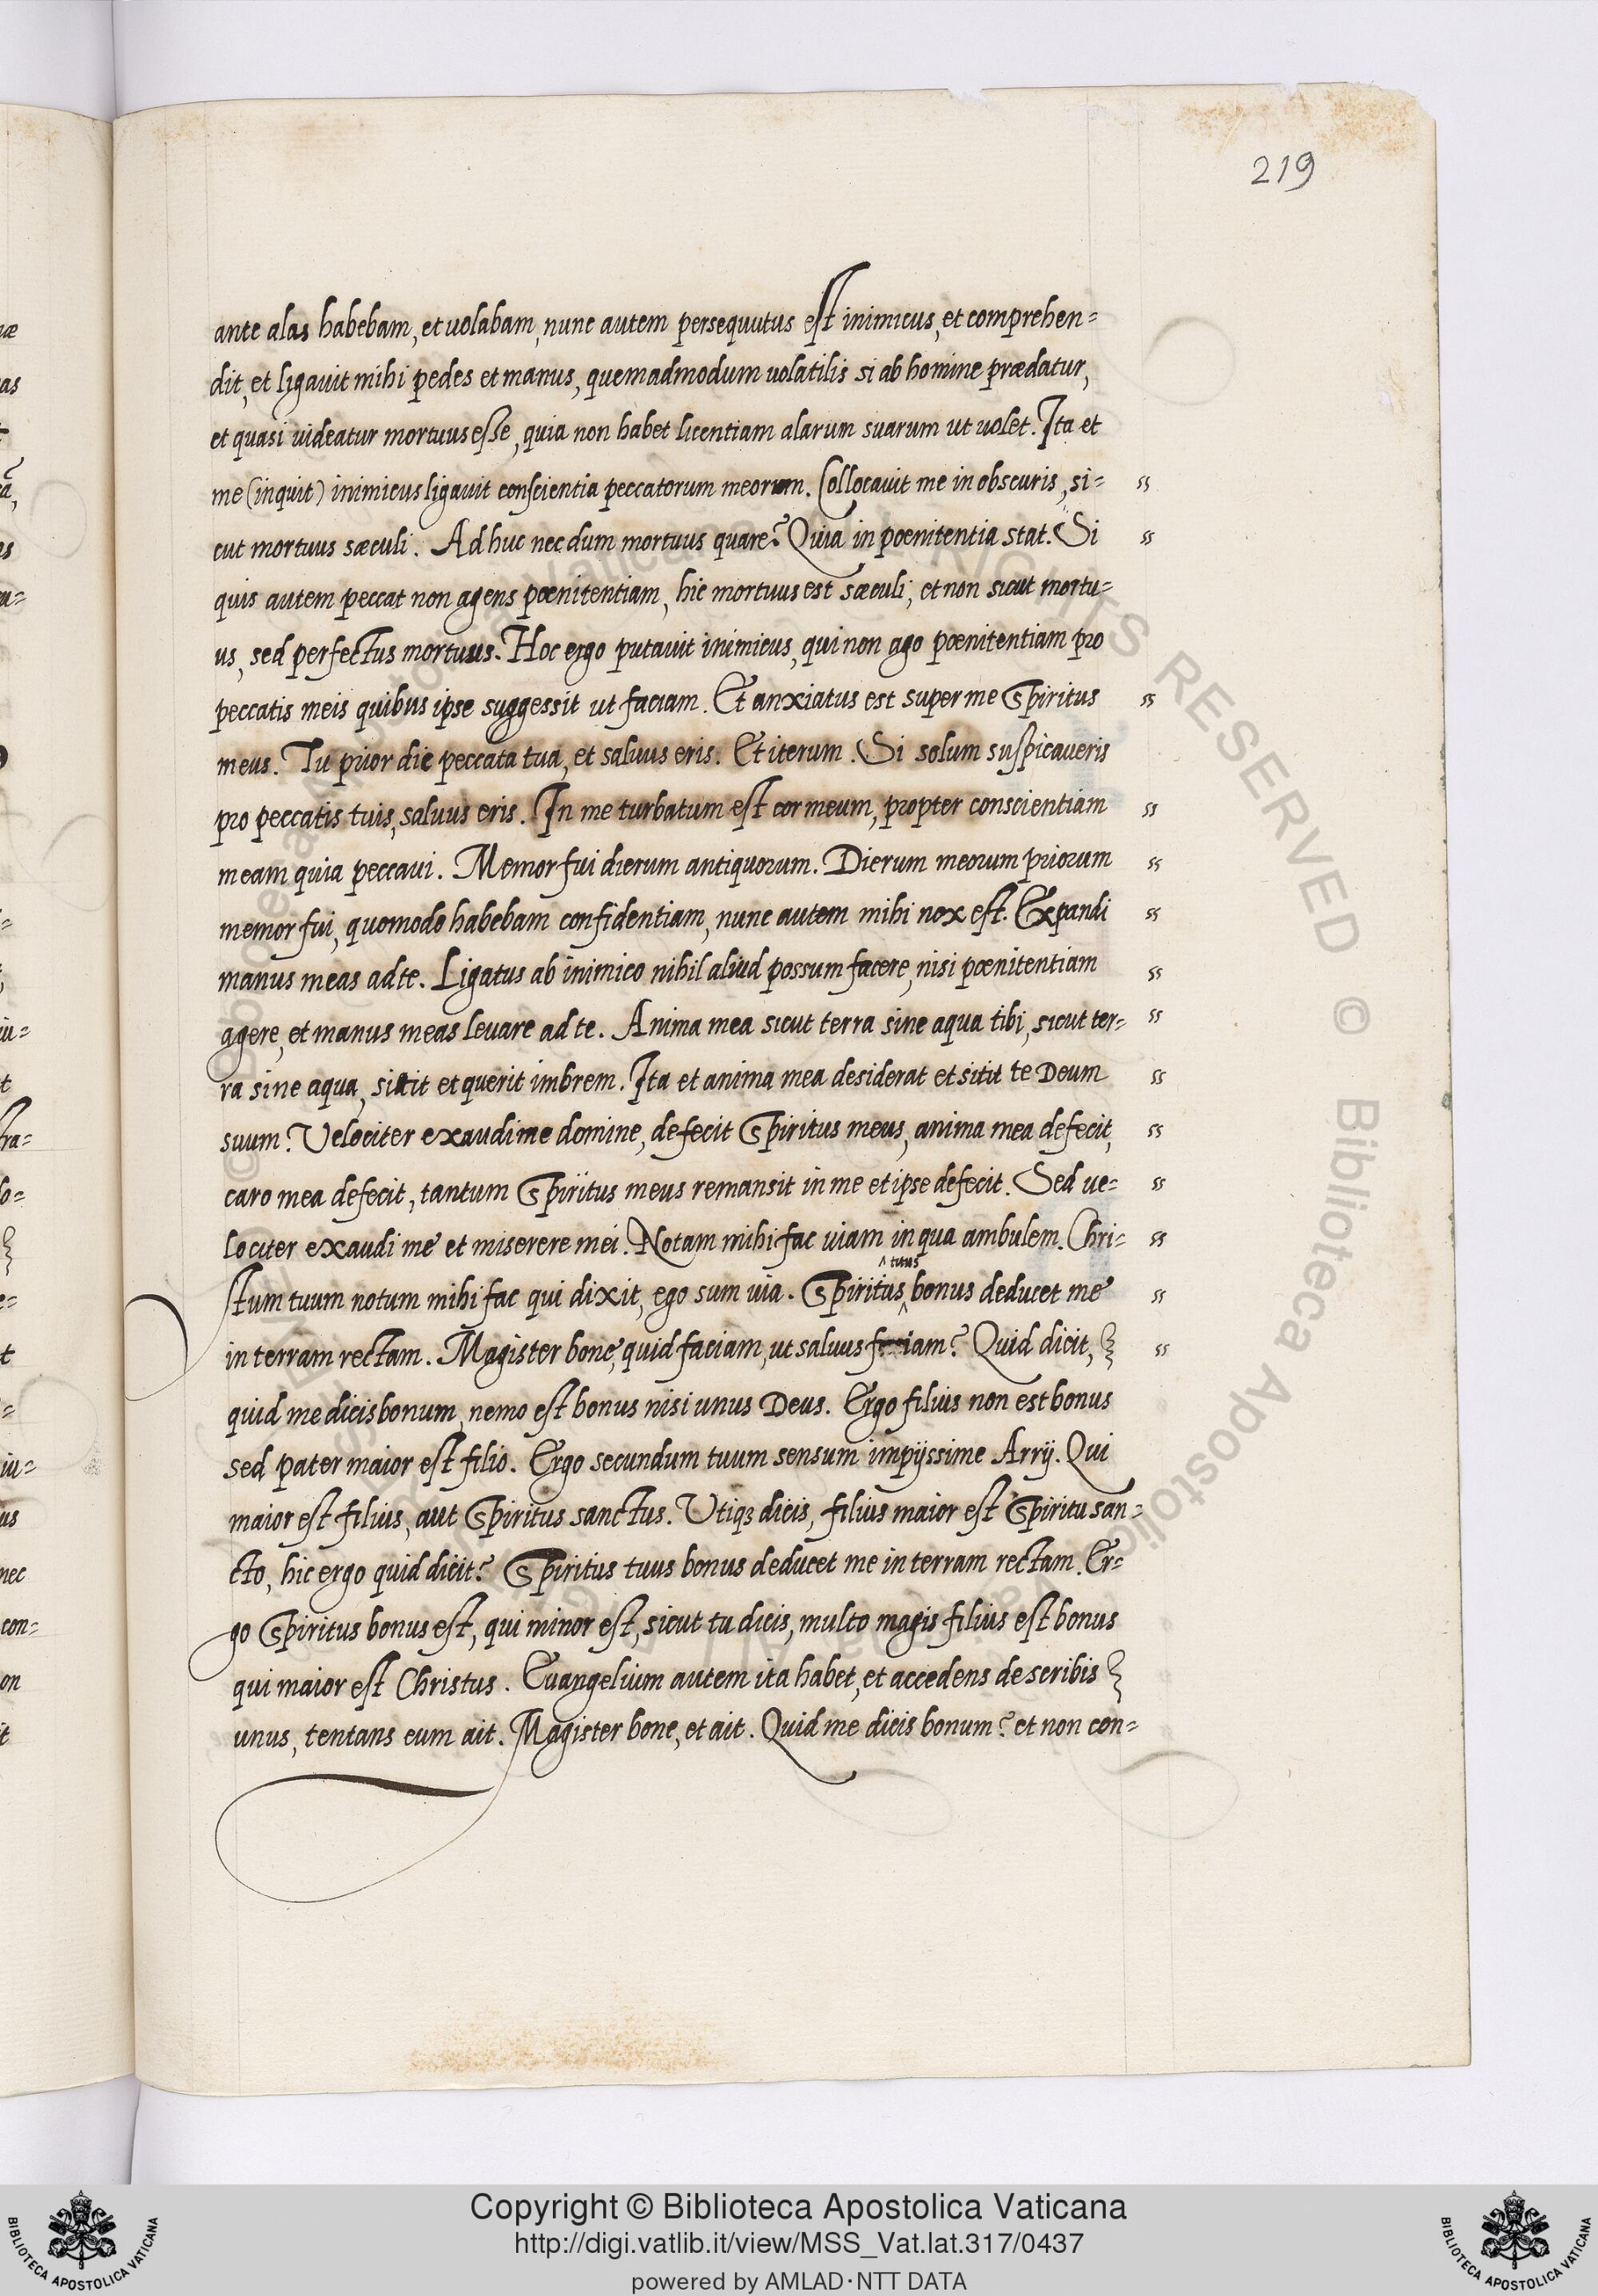 219
ante alas habebam, et uolabam, nunc autem persequutus est inimicus, et comprehen=
dit, et ligauit mihi pedes et manus, quemadmodum uolatilis si ab homine prædatur,
et quasi uideatur mortuus esse, quia non habet licentiam alarum suarum ut uolet. Ita et
me (inquit) inimicus ligauit conscientia peccatorum meorum. Collocauit me in obscuris, si=
cut mortuus sæculi. Adhuc nec dum mortuus quare? Quia in pœnitentia stat. Si
quis autem peccat non agens pœnitentiam, hic mortuus est sæculi, et non sicut mortu=
us, sed perfectus mortuus. Hoc ergo putauit inimicus, qui non ago pœnitentiam pro
peccatis meis quibus ipse suggessit ut faciam. Et anxiatus est super me Spiritus
meus. Tu prior dic peccata tua, et saluus eris. Et iterum. Si solum suspicaueris
pro peccatis tuis, saluus eris. In me turbatum est cor meum, propter conscientiam
meam quia peccaui. Memor fui dierum antiquorum. Dierum meorum priorum
memor fui, quomodo habebam confidentiam, nunc autem mihi nox est. Expandi
manus meas ad te. Ligatus ab inimico nihil aliud possum facere, nisi pœnitentiam
agere, et manus meas leuare ad te. Anima mea sicut terra sine aqua tibi, sicut ter=
ra sine aqua, sitit et querit imbrem. Ita et anima mea desiderat et sitit te Deum
suum. Velociter exaudi me domine, defecit Spiritus meus, anima mea defecit,
caro mea defecit, tantum Spiritus meus remansit in me et ipse defecit. Sed ue=
lociter exaudi me et miserere mei. Notam mihi fac uiam in qua ambulem. Chri=
^ tuus
stum tuum notum mihi fac qui dixit, ego sum uia. Spiritus ^ bonus deducet me
in terram rectam. Magister bone, quid faciam, ut saluus fiam? Quid dicit,
quid me dicis bonum, nemo est bonus nisi unus Deus. Ergo filius non est bonus
sed pater maior est filio. Ergo secundum tuum sensum impijssime Arrij. Qui
maior est filius, aut Spiritus sanctus. Utiqꝫ dicis, filius maior est Spiritu san=
cto, hic ergo quid dicit? Spiritus tuus bonus deducet me in terram rectam. Er=
go Spiritus bonus est, qui minor est, sicut tu dicis, multo magis filius est bonus
qui maior est Christus. Euangelium autem ita habet, et accedens de scribis
unus, tentans eum ait. Magister bone, et ait. Quid me dicis bonum? et non con=
Copyright © Biblioteca Apostolica Vaticana
http://digi.vatlib.it/view/MSS_Vat.lat.317/0437
powered by AMLAD·NTT DATA